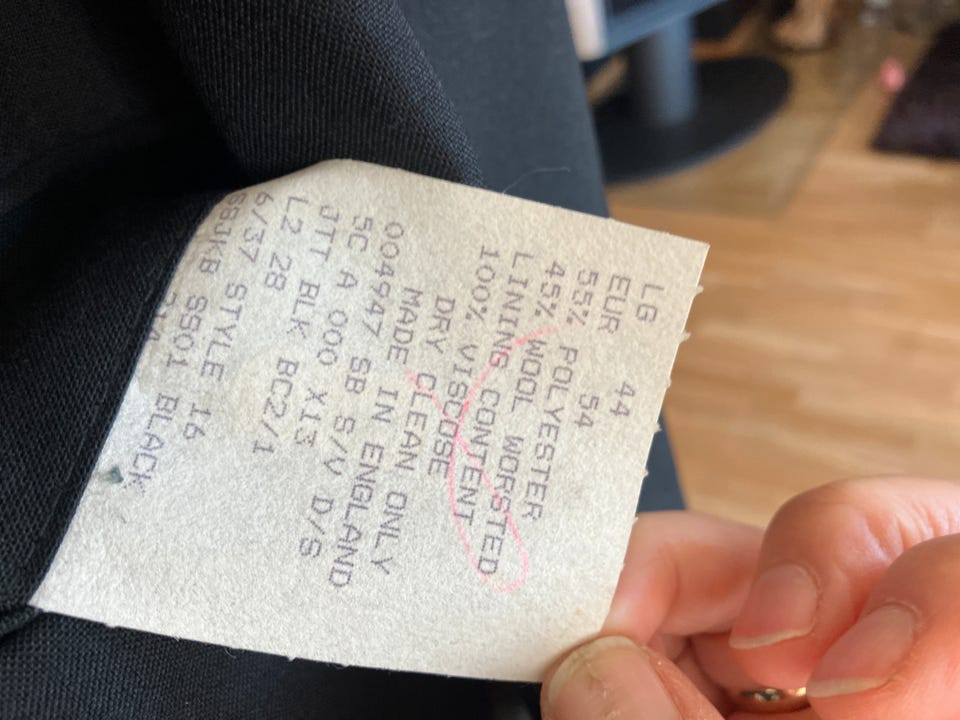 LG 44
EUR 54
55% POLYESTER
45% WOOL WORSTED
LINING CONTENT
100% VISCOSE
DRY CLEAN ONLY
MADE IN ENGLAND
004947 SB S/V D/S
5C A 000 X13
JTT BLK BC2/1
L2 28
6/37 STYLE 16
SBJKB SS01 BLACK